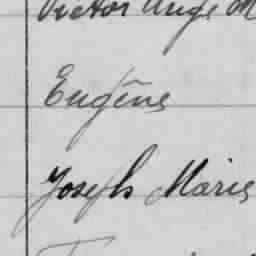 Victor Ange M
Eugène
Joseph Marie